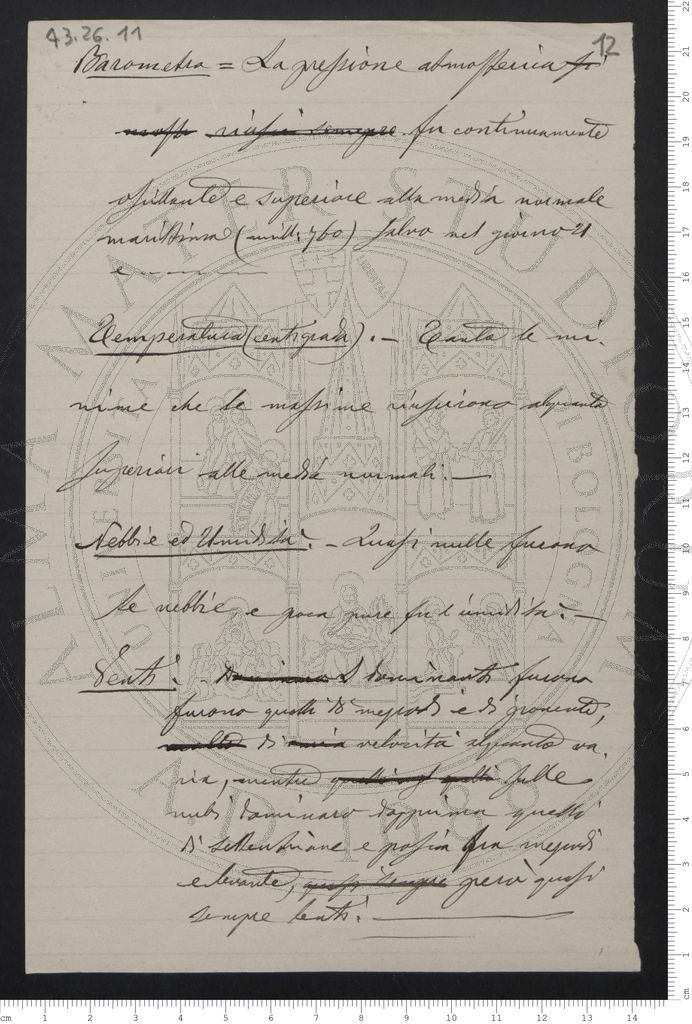 43.26.11
12
Barometro = La pressione atmosferica fu
riuscì sempre fu continuamente
oscillante e superiore alla media normale
marittima (mill. 760) salvo nel giorno 21
e – – – – –
Temperatura (centigrada). – Tanto le mi-
nime che le massime riuscirono alquanto
superiori alle medie normali. —
Nebbie ed Umidità. – Quasi nulle furono
le nebbie, e poca pure fu l'umidità. —
Venti. – I dominanti furono
furono quelli di mezzodì e di ponente,
di velocità alquanto va-
ria, mentre sulle
nubi dominaro dapprima quelli
di settentrione e poscia fra mezzodì
e levante, quasi sempre però quasi
sempre lenti. —
ALMA MATER STUDIORUM
UNIVERSITÀ DI BOLOGNA
LIBERTAS
A.D. 1088